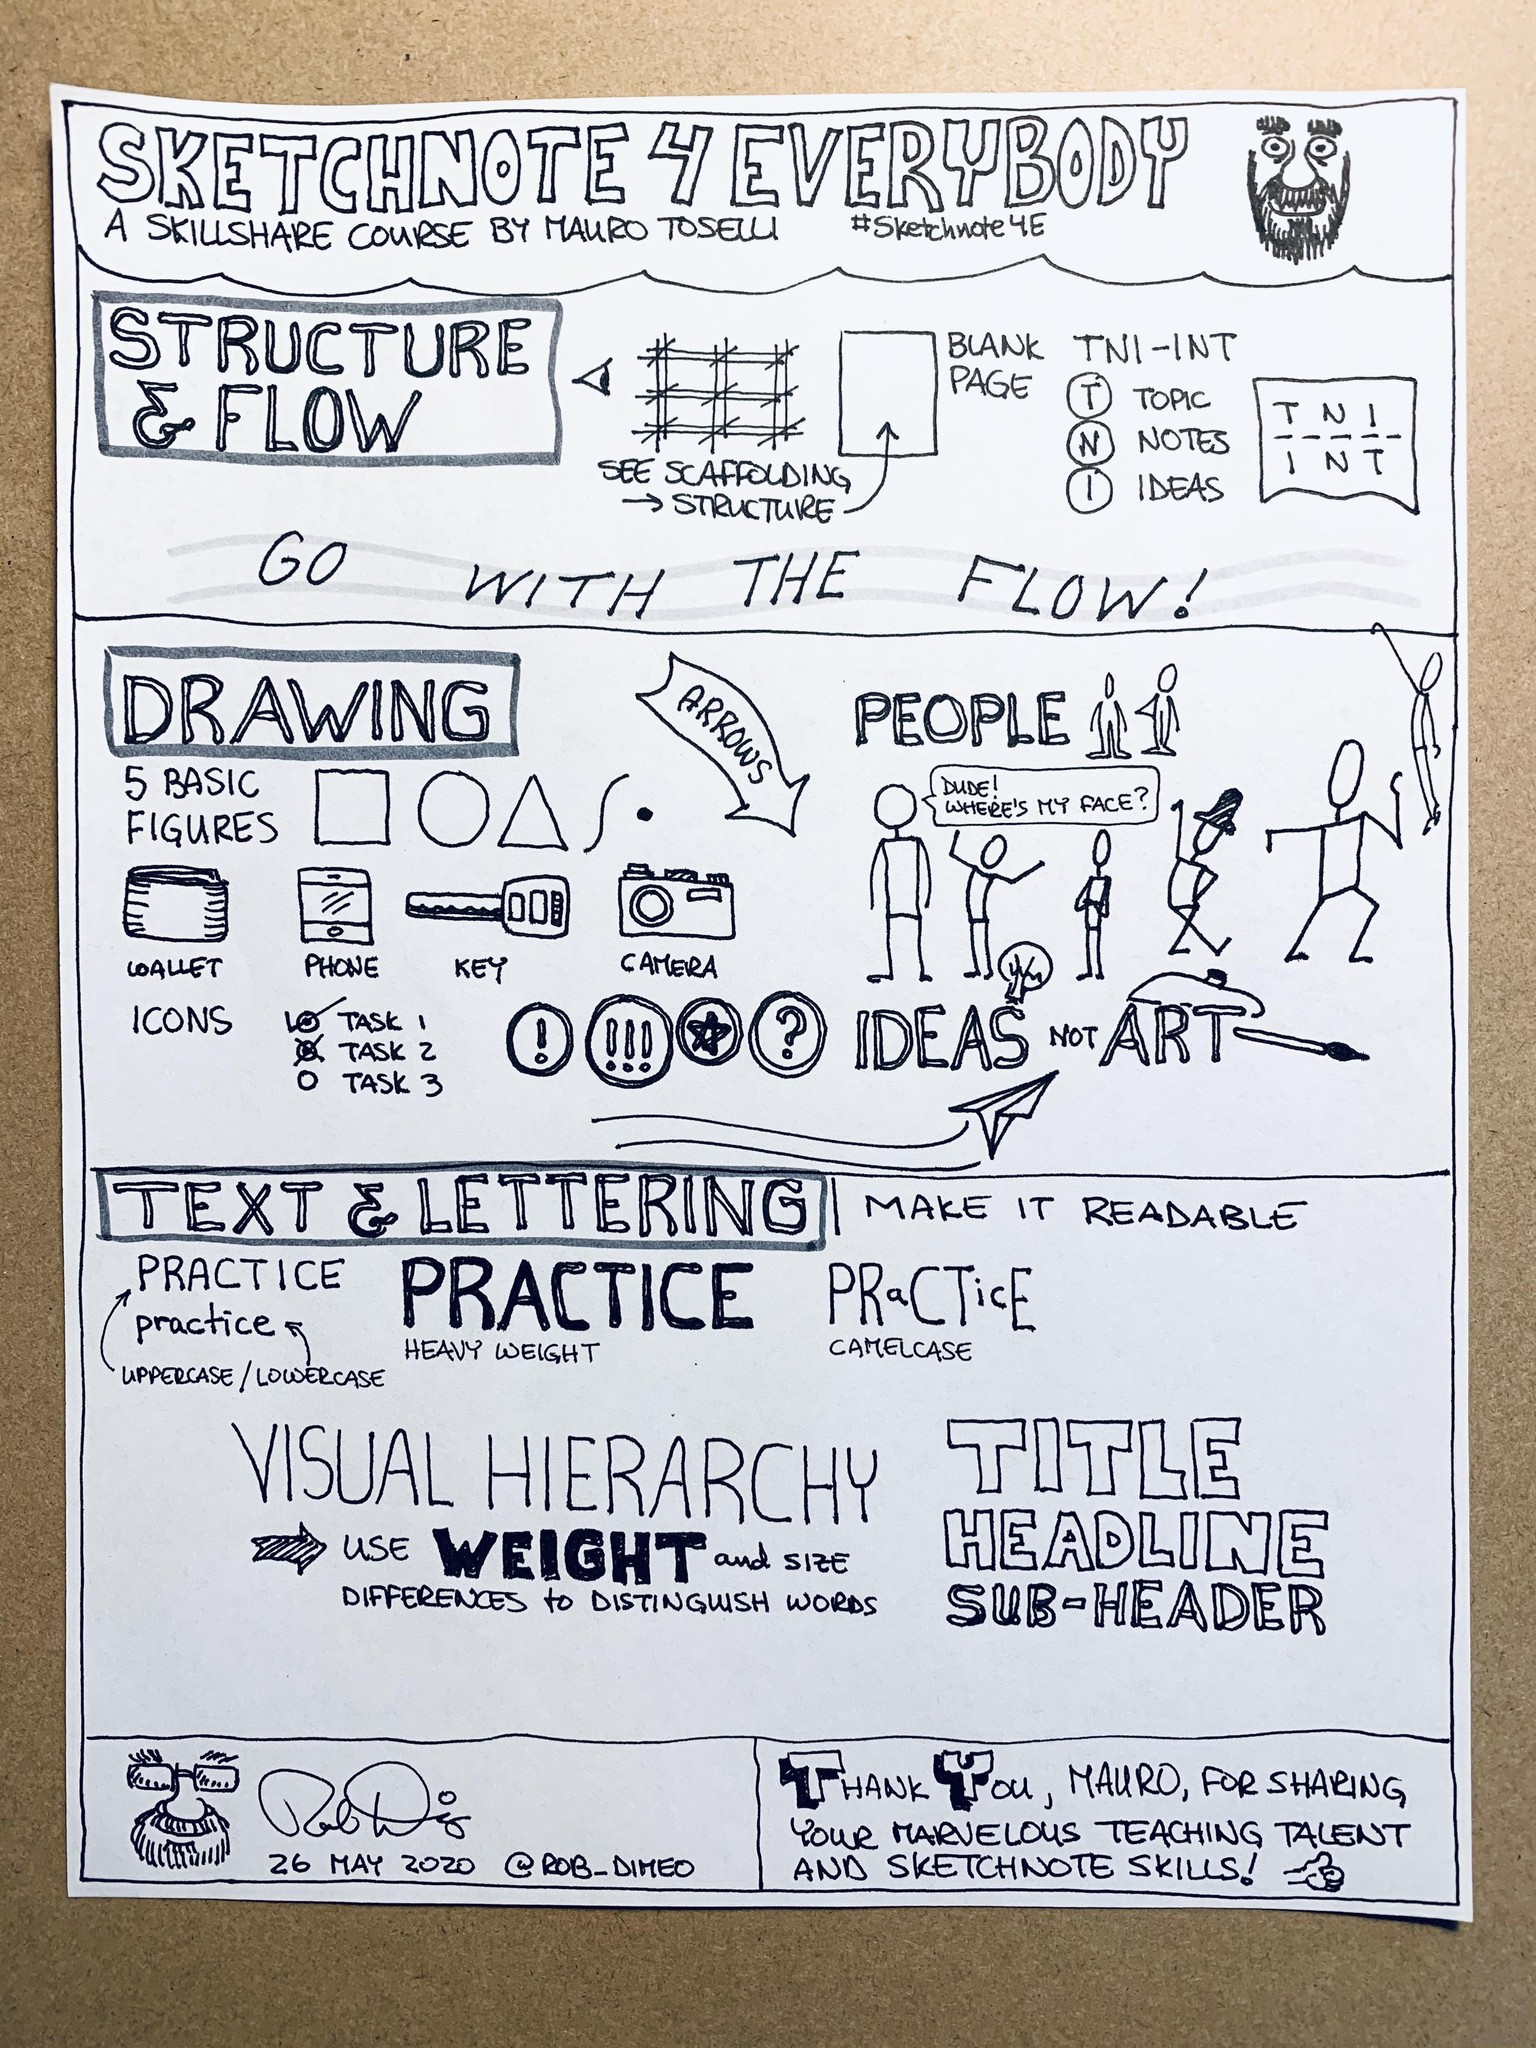 SKETCHNOTE 4 EVERYBODY
A SKILLSHARE COURSE BY MAURO TOSELLI #Sketchnote4E
STRUCTURE
& FLOW
SEE SCAFFOLDING
→ STRUCTURE
BLANK
PAGE
TNI-INT
T TOPIC
N NOTES
I IDEAS
T N I
I N T
GO WITH THE FLOW!
DRAWING
5 BASIC
FIGURES
ARROWS
WALLET PHONE KEY CAMERA
ICONS
TASK 1
TASK 2
TASK 3
! !!! ?
PEOPLE
DUDE!
WHERE'S MY FACE?
IDEAS NOT ART
TEXT & LETTERING | MAKE IT READABLE
PRACTICE
practice
UPPERCASE/LOWERCASE
PRACTICE
HEAVY WEIGHT
PRaCTicE
CAMELCASE
VISUAL HIERARCHY
USE WEIGHT and SIZE
DIFFERENCES to DISTINGUISH WORDS
TITLE
HEADLINE
SUB-HEADER
26 MAY 2020 @ROB_DIMEO
THANK YOU, MAURO, FOR SHARING
YOUR MARVELOUS TEACHING TALENT
AND SKETCHNOTE SKILLS!